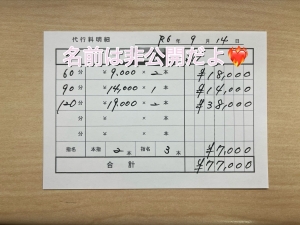 代行料明細 R6年9月14日
名前は非公開だよ❤️‍🔥
60分 ¥9,000 × 2本 ¥18,000
90分 ¥14,000 × 1 ¥14,000
120分 ¥19,000 × 2本 ¥38,000
分 ¥ × 本
分 ¥ × 本
指名 本指 2本 指名 3本 ¥7,000
合計 ¥77,000